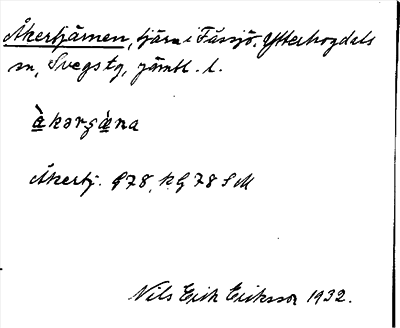 Åkertjärnen, tjärn i Fåssjö. Ytterhogdals
sn, Svegs tg, Jämtl. l.
àkərʂä̀na
Åkertj. G78, k. G78 S M
Nils Erik Eriksson 1932.